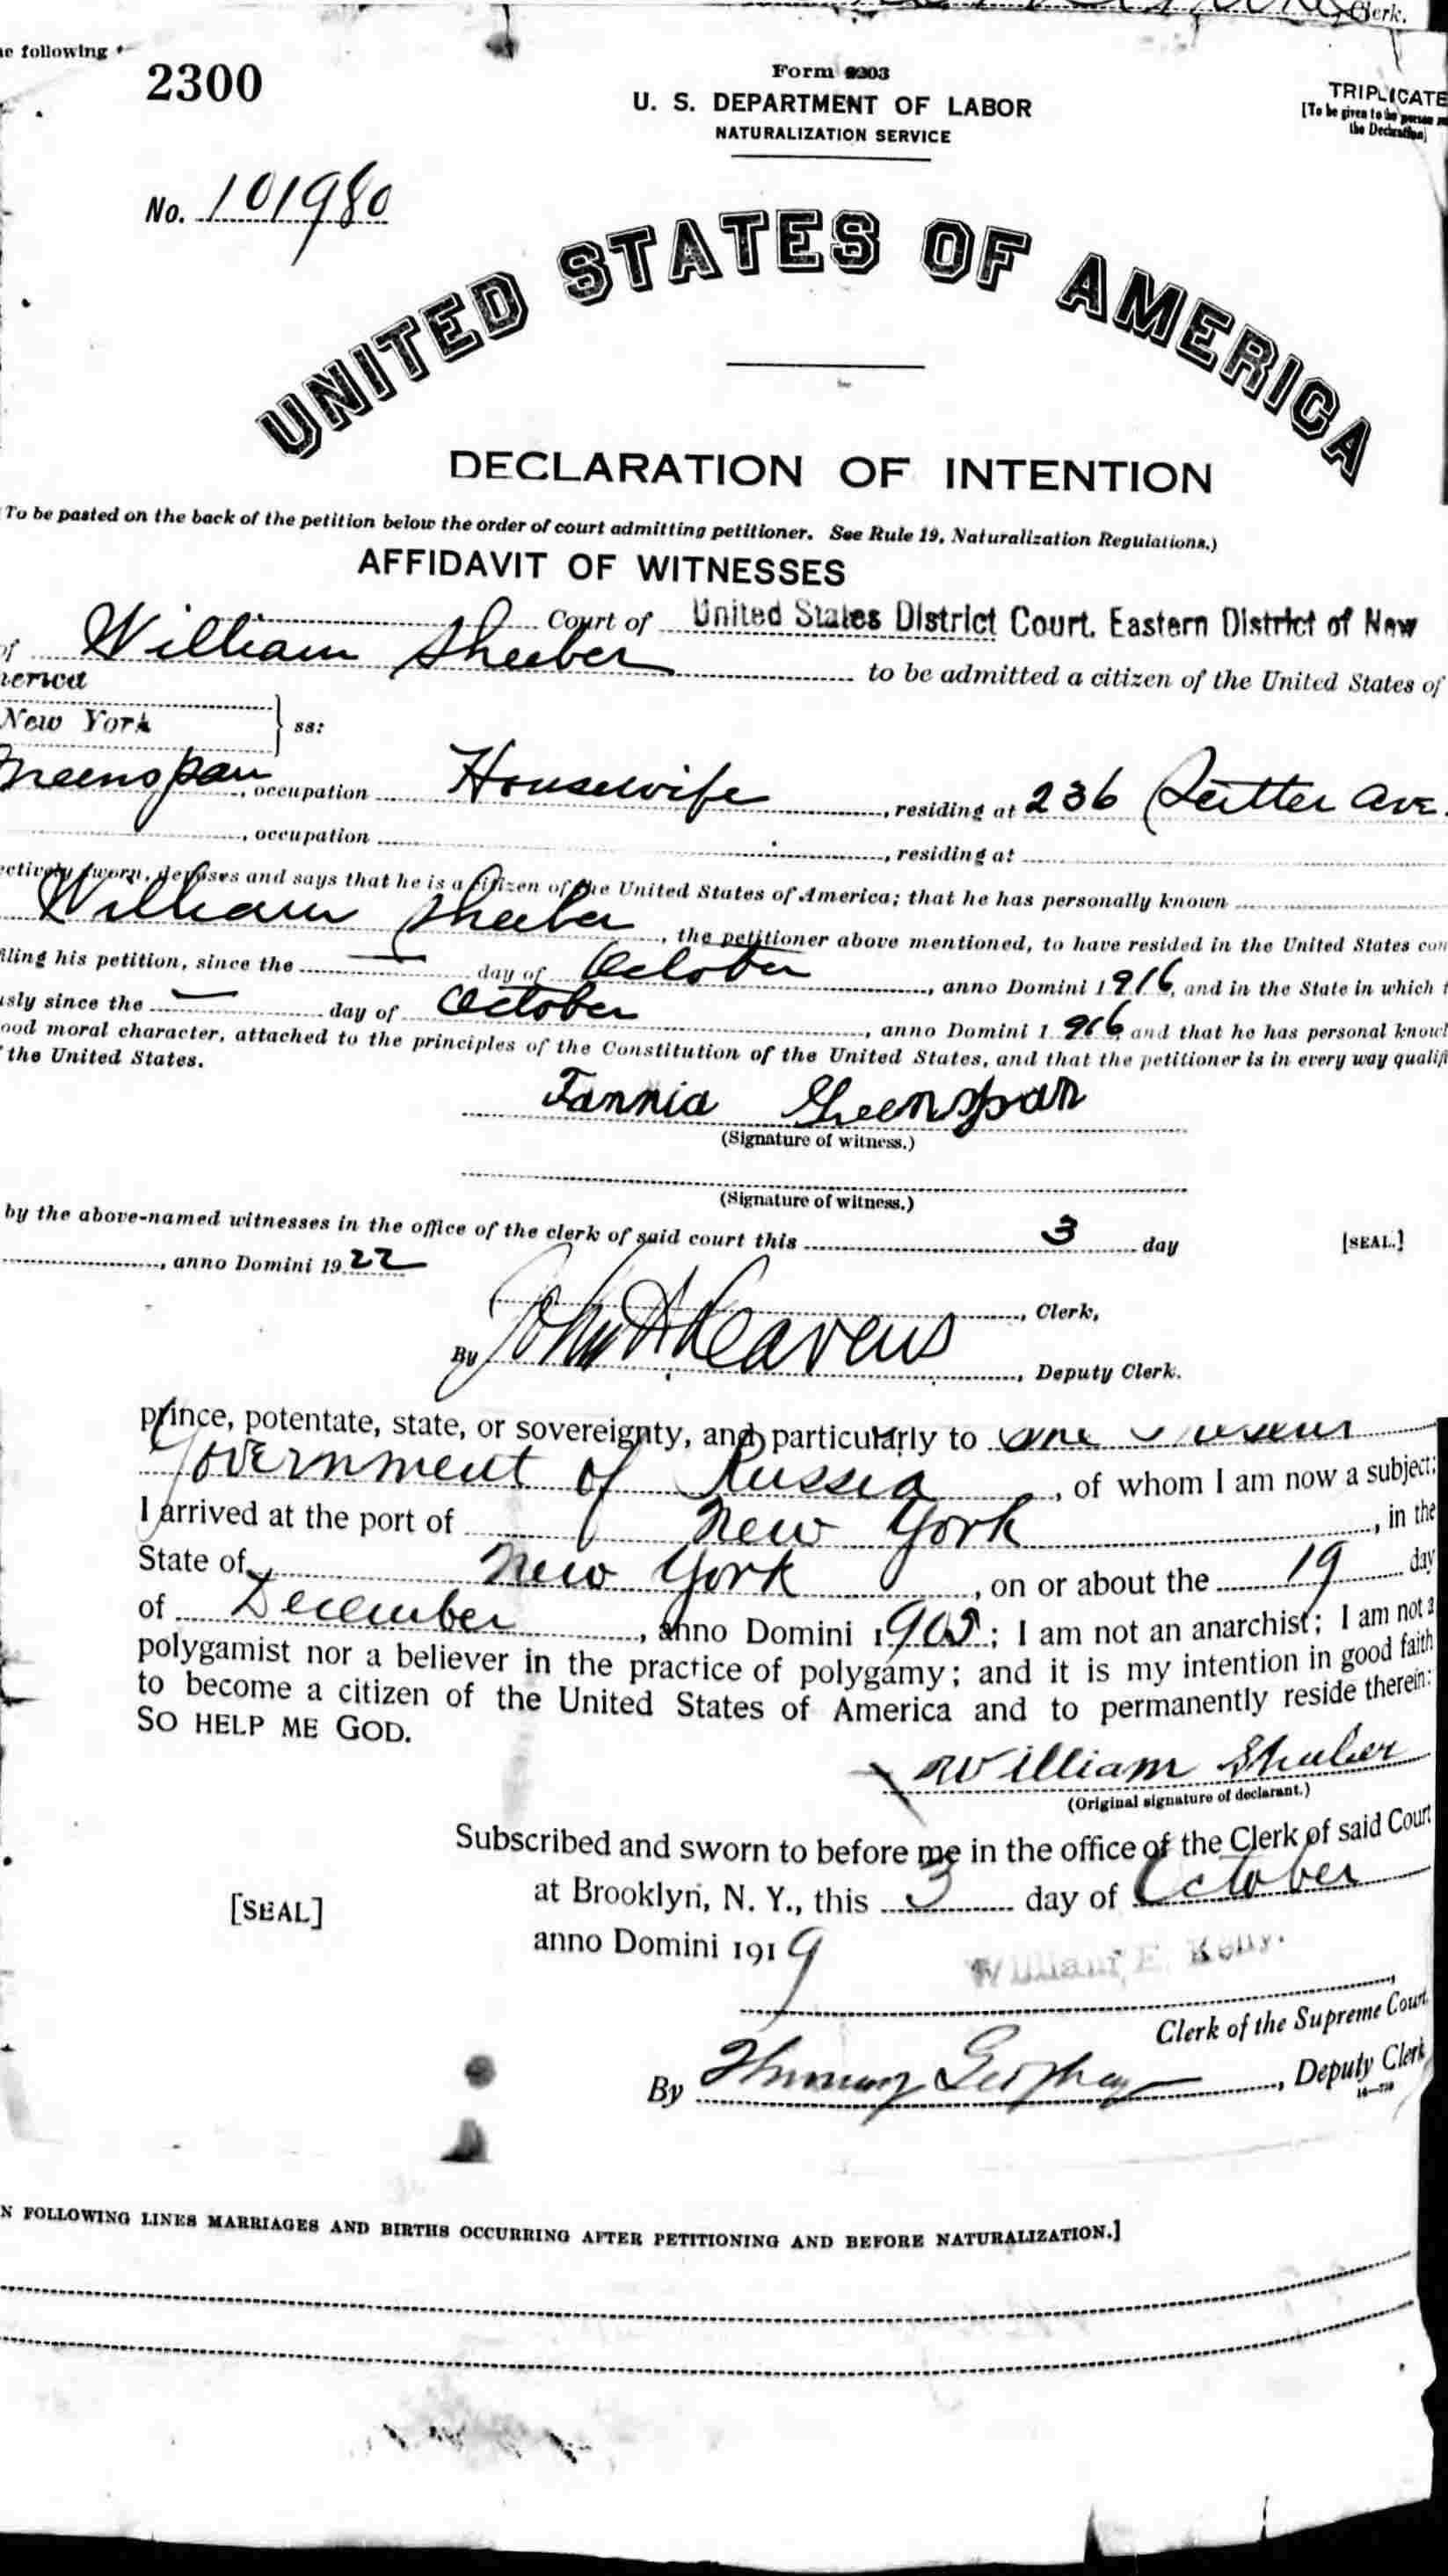 Clerk.
e following
2300
Form 2203
TRIPLICATE
U. S. DEPARTMENT OF LABOR
[To be given to the person
the Declaration]
NATURALIZATION SERVICE
No. 101980
UNITED STATES OF AMERICA
DECLARATION OF INTENTION
To be pasted on the back of the petition below the order of court admitting petitioner. See Rule 19, Naturalization Regulations.)
AFFIDAVIT OF WITNESSES
Court of United States District Court. Eastern District of New
of William Sheeber to be admitted a citizen of the United States of
merica
New York ss:
reenspan, occupation Housewife, residing at 236 Sutter Ave.
, occupation , residing at
ectively sworn, deposes and says that he is a citizen of the United States of America; that he has personally known
William Sheeber, the petitioner above mentioned, to have resided in the United States con
iling his petition, since the — day of October, anno Domini 1916, and in the State in which t
usly since the — day of October, anno Domini 1916 and that he has personal knowl
ood moral character, attached to the principles of the Constitution of the United States, and that the petitioner is in every way qualifi
the United States.
Fannia Greenspan
(Signature of witness.)
(Signature of witness.)
by the above-named witnesses in the office of the clerk of said court this 3 day [SEAL.]
, anno Domini 1922
, Clerk,
By , Deputy Clerk.
prince, potentate, state, or sovereignty, and particularly to The Present
Government of Russia, of whom I am now a subject;
I arrived at the port of New York, in the
State of New York, on or about the 19 day
of December, anno Domini 1905; I am not an anarchist; I am not a
polygamist nor a believer in the practice of polygamy; and it is my intention in good faith
to become a citizen of the United States of America and to permanently reside therein:
SO HELP ME GOD.
William Sheeber
(Original signature of declarant.)
Subscribed and sworn to before me in the office of the Clerk of said Court
[SEAL] at Brooklyn, N. Y., this 3 day of October
anno Domini 1919
William E. Kelly.
Clerk of the Supreme Court
By , Deputy Clerk
N FOLLOWING LINES MARRIAGES AND BIRTHS OCCURRING AFTER PETITIONING AND BEFORE NATURALIZATION.]